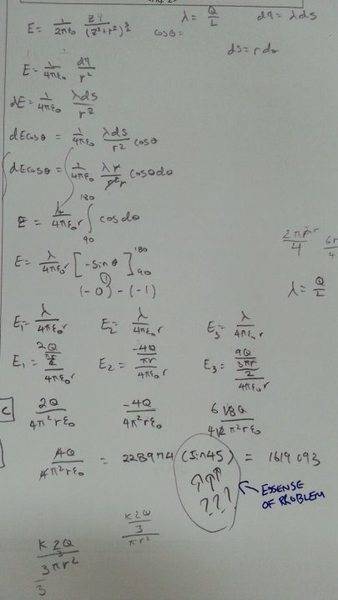 E = 1/2πε₀ (z²+r²)^3/2 λ = Q/L dq = λds
cosθ =
ds = rdθ
E = 1/4πε₀ dq/r²
dE = 1/4πε₀ λds/r²
dEcosθ = 1/4πε₀ λds/r² cosθ
dEcosθ = 1/4πε₀ λr/r²r cosθdθ
E = λ/4πε₀r ∫ 180 90 cosdθ
2πr/4
E = λ/4πε₀r [-sinθ] 180 90
(-0) - (-1)
λ = Q/L
E₁ = λ/4πε₀r E₂ = λ/4πε₀r E₃ = λ/4πε₀r
E₁ = 2Q E₂ = -4Q/πr/4πε₀r E₃ = 9Q/3πr/2/4πε₀r
C 2Q/4π²rε₀ -4Q/4π²rε₀
4Q/4π²rε₀ = 2289974 (Sin45) = 1619093
???
ESSENSE
OF PROBLEM
K2Q/3/πr²
K2Q/3πr²/3